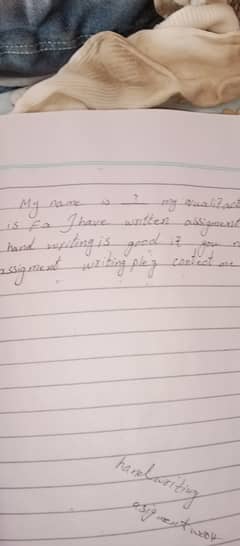 My name is ? my qualificat
is Fa I have written assigment
hand writing is good if you n
assigment writing plez contect me
handwriting
asigment work